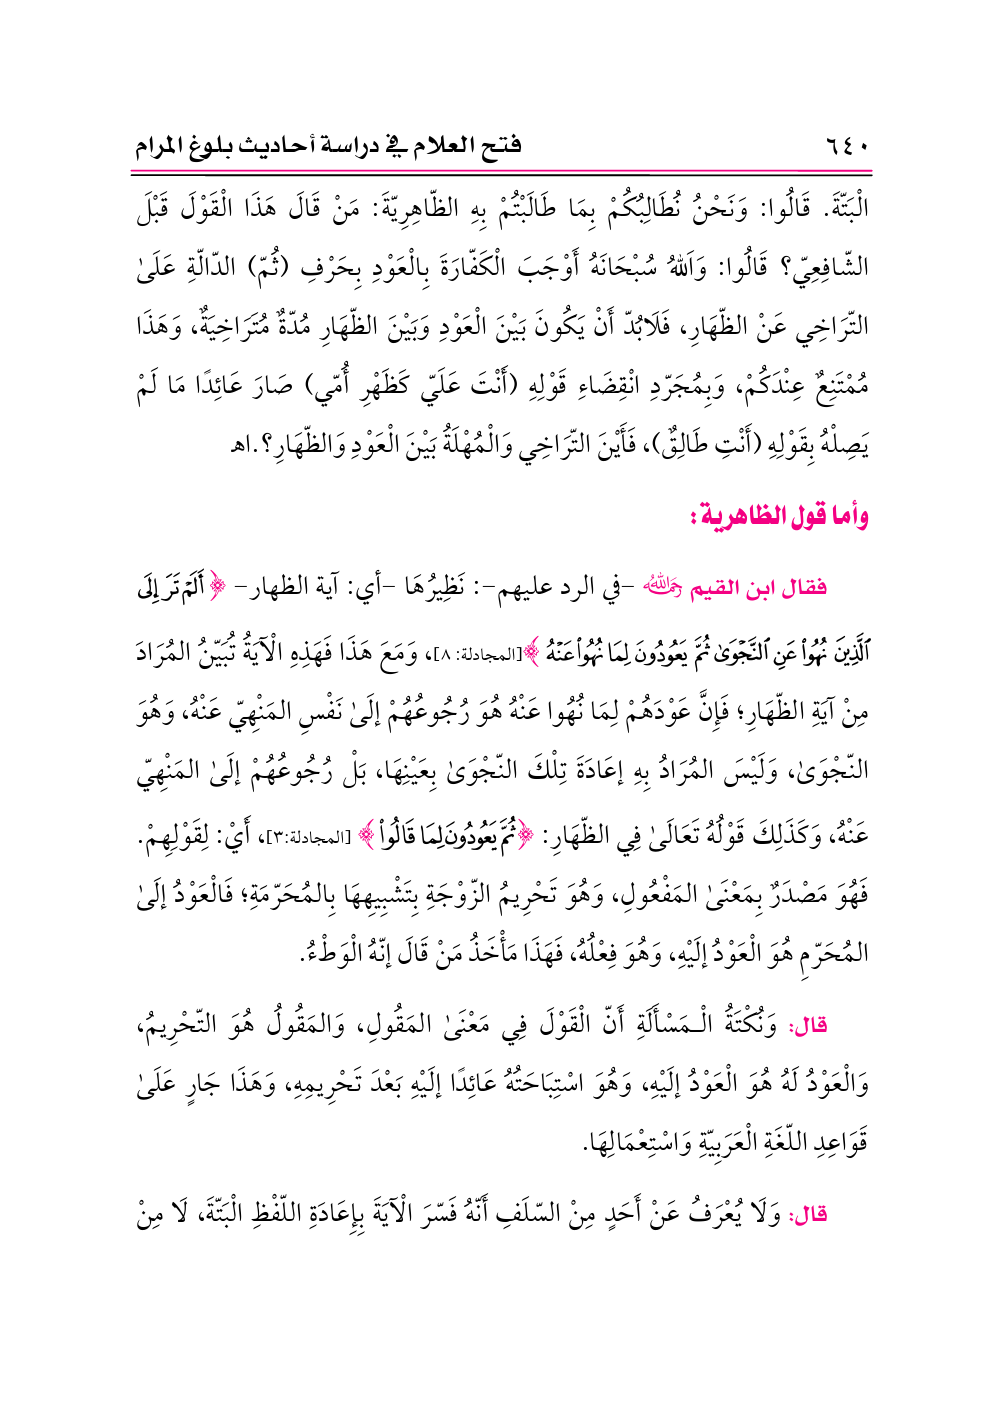 ٦٤٠ فتح العلام في دراسة أحاديث بلوغ المرام
الْبَتّةَ. قَالُوا: وَنَحْنُ نُطَالِبُكُمْ بِمَا طَالَبْتُمْ بِهِ الظّاهِرِيّةَ: مَنْ قَالَ هَذَا الْقَوْلَ قَبْلَ
الشّافِعِيّ؟ قَالُوا: وَاَللهُ سُبْحَانَهُ أَوْجَبَ الْكَفّارَةَ بِالْعَوْدِ بِحَرْفِ (ثُمّ) الدّالّةِ عَلَىٰ
التّرَاخِي عَنْ الظّهَارِ، فَلَابُدّ أَنْ يَكُونَ بَيْنَ الْعَوْدِ وَبَيْنَ الظّهَارِ مُدّةٌ مُتَرَاخِيَةٌ، وَهَذَا
مُمْتَنِعٌ عِنْدَكُمْ، وَبِمُجَرّدِ انْقِضَاءِ قَوْلِهِ (أَنْتَ عَلَيّ كَظَهْرِ أُمّي) صَارَ عَائِدًا مَا لَمْ
يَصِلْهُ بِقَوْلِهِ (أَنْتِ طَالِقٌ)، فَأَيْنَ التّرَاخِي وَالْمُهْلَةُ بَيْنَ الْعَوْدِ وَالظّهَارِ؟.اهـ
وأما قول الظاهرية:
فقال ابن القيم رحمه الله –في الرد عليهم–: نَظِيرُهَا –أي: آية الظهار– ﴿أَلَمْ تَرَ إِلَى
ٱلَّذِينَ نُهُوا۟ عَنِ ٱلنَّجْوَىٰ ثُمَّ يَعُودُونَ لِمَا نُهُوا۟ عَنْهُ﴾[المجادلة: ٨]، وَمَعَ هَذَا فَهَذِهِ الْآيَةُ تُبَيّنُ المُرَادَ
مِنْ آيَةِ الظّهَارِ؛ فَإِنَّ عَوْدَهُمْ لِمَا نُهُوا عَنْهُ هُوَ رُجُوعُهُمْ إلَىٰ نَفْسِ المَنْهِيّ عَنْهُ، وَهُوَ
النّجْوَىٰ، وَلَيْسَ المُرَادُ بِهِ إعَادَةَ تِلْكَ النّجْوَىٰ بِعَيْنِهَا، بَلْ رُجُوعُهُمْ إلَىٰ المَنْهِيّ
عَنْهُ، وَكَذَلِكَ قَوْلُهُ تَعَالَىٰ فِي الظّهَارِ: ﴿ثُمَّ يَعُودُونَ لِمَا قَالُوا۟﴾ [المجادلة:٣]، أَيْ: لِقَوْلِهِمْ.
فَهُوَ مَصْدَرٌ بِمَعْنَىٰ المَفْعُولِ، وَهُوَ تَحْرِيمُ الزّوْجَةِ بِتَشْبِيهِهَا بِالمُحَرّمَةِ؛ فَالْعَوْدُ إلَىٰ
المُحَرّمِ هُوَ الْعَوْدُ إلَيْهِ، وَهُوَ فِعْلُهُ، فَهَذَا مَأْخَذُ مَنْ قَالَ إنّهُ الْوَطْءُ.
قال: وَنُكْتَةُ الْـمَسْأَلَةِ أَنّ الْقَوْلَ فِي مَعْنَىٰ المَقُولِ، وَالمَقُولُ هُوَ التّحْرِيمُ،
وَالْعَوْدُ لَهُ هُوَ الْعَوْدُ إلَيْهِ، وَهُوَ اسْتِبَاحَتُهُ عَائِدًا إلَيْهِ بَعْدَ تَحْرِيمِهِ، وَهَذَا جَارٍ عَلَىٰ
قَوَاعِدِ اللّغَةِ الْعَرَبِيّةِ وَاسْتِعْمَالِهَا.
قال: وَلَا يُعْرَفُ عَنْ أَحَدٍ مِنْ السّلَفِ أَنّهُ فَسّرَ الْآيَةَ بِإِعَادَةِ اللّفْظِ الْبَتّةَ، لَا مِنْ